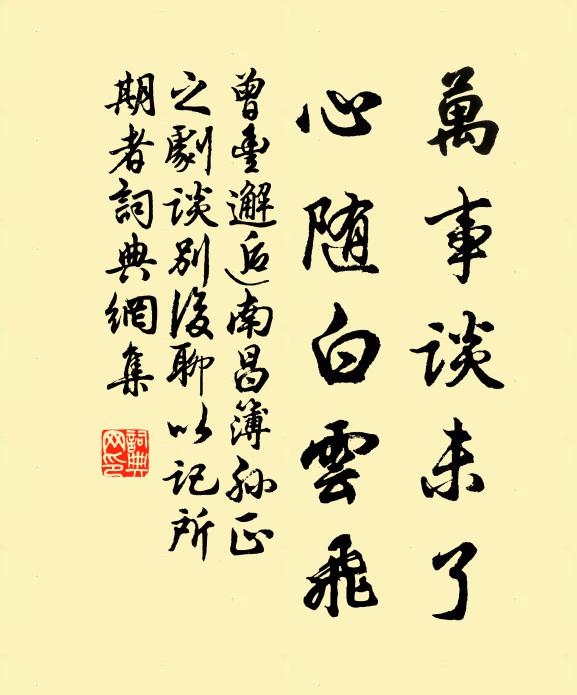 萬事談未了
心随白雲飛
曾豊邂逅南昌簿孫正
之劇談別後聊以記所
期者詞典網集
詞典
网印